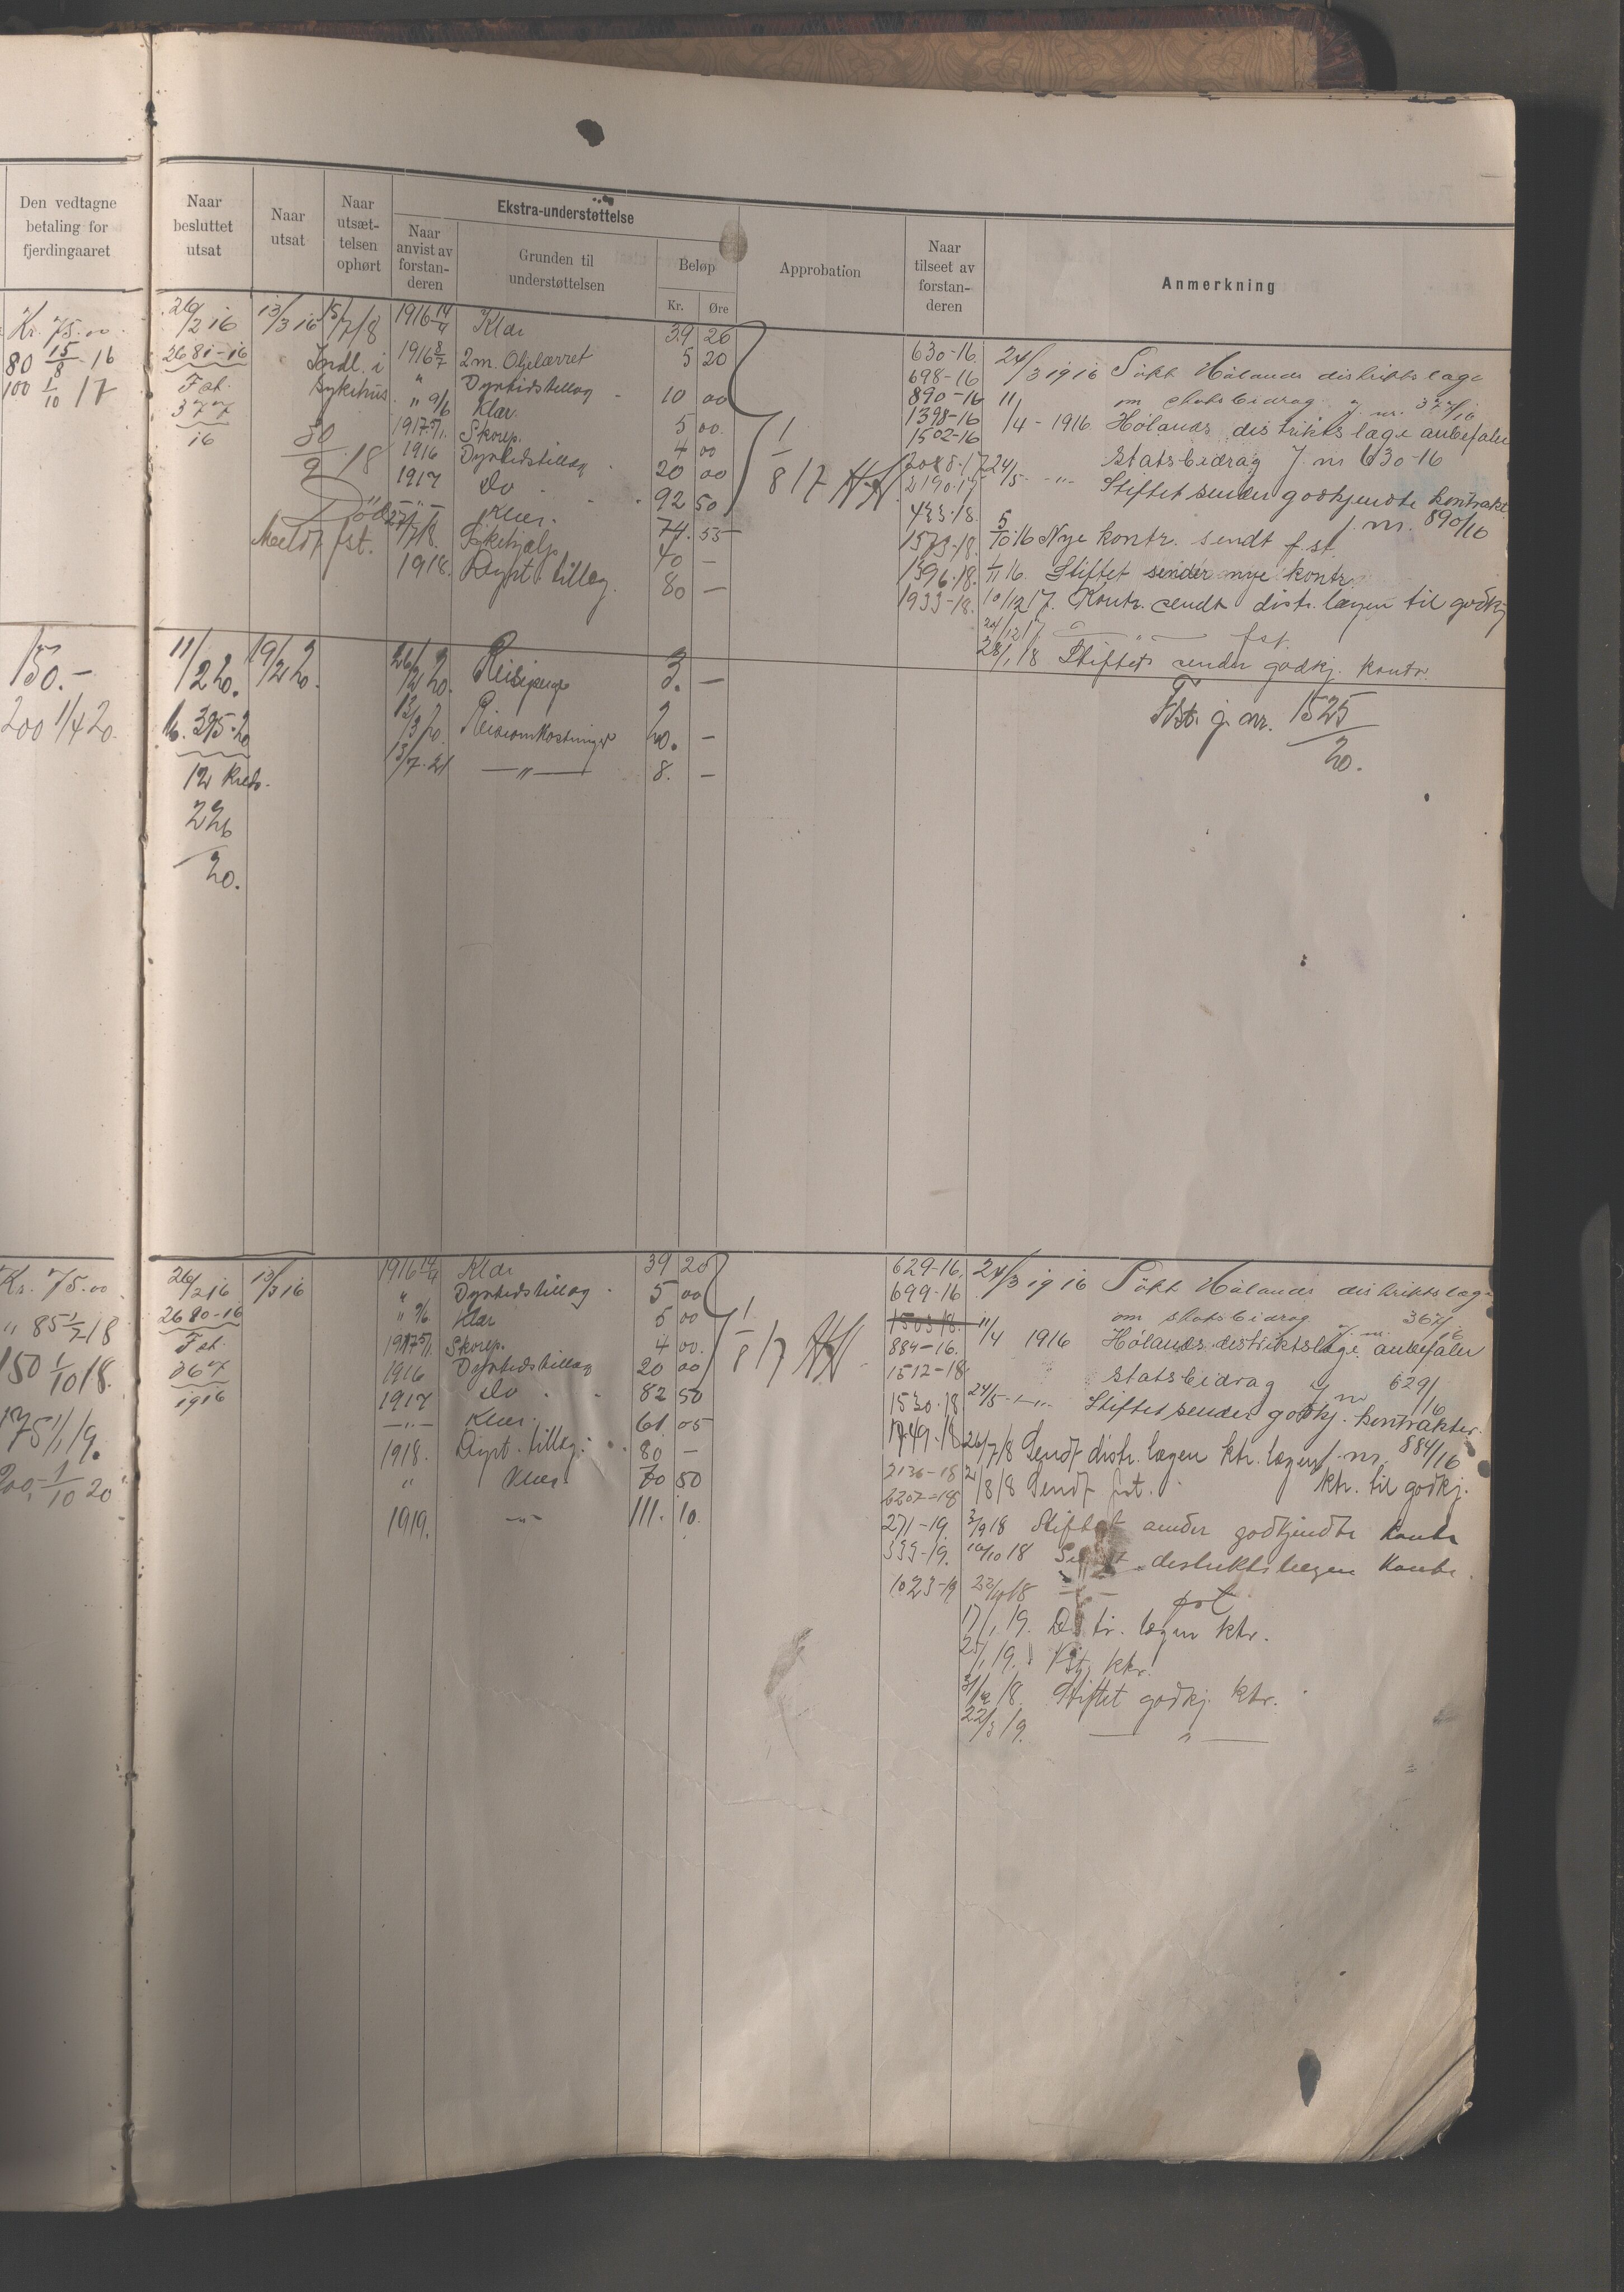 Den vedtagne betaling for fjerdingaaret
Naar besluttet utsat
Naar utsat
Naar utsæt-telsen ophørt
Ekstra-understøttelse
Naar anvist av forstan-deren
Grunden til understøttelsen
Beløp
Kr. Øre
Approbation
Naar tilseet av forstan-deren
Anmerkning
Kr. 75.00
80 15/8 - 16
100 1/10 17
26/2 16
2681-16
Fat.
377
16
13/3 16
15/7 18
Indl. i
sykehus.
30/9 18
Død
Meldt fst.
1916 14/4 Klær 39 26
1916 8/7 2 m. Oljelærret 5 20
" Dyrtidstillæg 10 00
" 9/6 Klær. 5 00.
1917 5/1. Skorep. 4 00
1916 Dyrtidstillæg 20 00
1917 do 92 50
— " — Klær. 74. 55
27/7 18. Sykehjælp 40 —
1918. Dyrt. tillæg. 80 —
1/8 17
630-16.
698-16
890-16
1398-16
1502-16
2088-17
2190-17
423-18.
1573-18.
1396-18.
1933-18.
24/3 1916 Søkt Hølands distriktslæge
om statsbidrag. J. nr. 377/16
11/4 - 1916 Hølands distriktslæge anbefaler
statsbidrag J. nr 630-16
24/5 - "- Stiftet sender godkjendte kontrakt
J. nr. 890/16
5/10 16 Nye kontr. sendt fst.
1/11 16. Stiftet sender nye kontr.
10/12 17. Kontr. sendt distr. lægen til godkj
24/12 17. — " — fst.
28/1 18 Stiftet sender godkj. kontr.
150.-
200 1/4 20.
11/2 20.
16. 395-20
12 Kreds.
226
20.
19/2 20.
26/2 20. Reisepenge 3. —
13/3 20. Reiseomkostninger 20. —
13/7. 21 — " — 8. —
Fst. j. nr. 1525
20.
Kr. 75.00
" 85 1/2 18
150 1/10 18.
175 1/1 19.
200 - 1/10 20
26/2 16
2680-16
Fat.
367
1916
13/3 16
1916 14/4 Klær 39 20
" Dyrtidstillæg 5 00
" 9/6 Klær 5 00
1917 5/1. Skorep. 4 00.
1916 Dyrtidstillæg 20 00
1917 do 82 50
— " — Klær. 61. 05
1918. Dyrt. tillæg. 80 —
" Klær 70 50
1919. — " — 111. 10.
1/8 17
629-16.
699-16
1503/18.
884-16.
1512-18
1530.18
1749.18
2136-18
2202-18
271-19.
339-19.
1023-19
24/3 1916 Søkt Hølands distriktslæge
om statsbidrag J. nr. 367/16
11/4 1916 Hølands distriktslæge anbefaler
statsbidrag J. nr 629/16
24/5 - " - Stiftet sender godkj. kontrakter.
J. nr. 884/16
26/7 18 Sendt distr. lægen ktr.
ktr. til godkj.
2/8 18 Sendt fst.
3/9 18 Stiftet sender godkjendte kontr
10/10 18 Sendt distriktslægen kontr.
22/10 18 — " — fst
17/1 19. Distr. lægen ktr.
25/1 19. Fst. ktr.
31/12 18. Stiftet godkj. ktr.
22/3 19. — " —